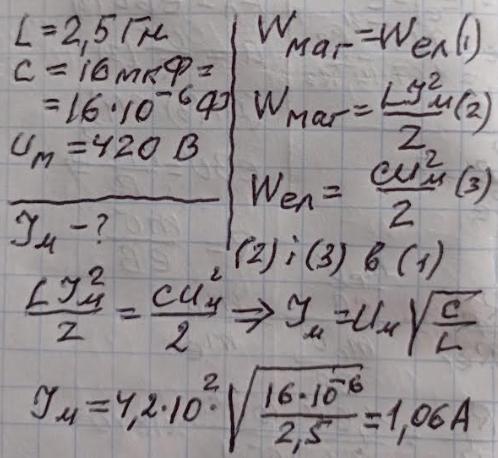 L = 2,5 Гн
C = 16 мкФ =
= 16·10⁻⁶ Ф
Uм = 420 В
Iм - ?
Wмаг = Wел (1)
Wмаг = LIм²/2 (2)
Wел = CUм²/2 (3)
(2) і (3) в (1)
LIм²/2 = CUм²/2 ⇒ Iм = Uм √(C/L)
Iм = 4,2·10²·√(16·10⁻⁶/2,5) = 1,06 А